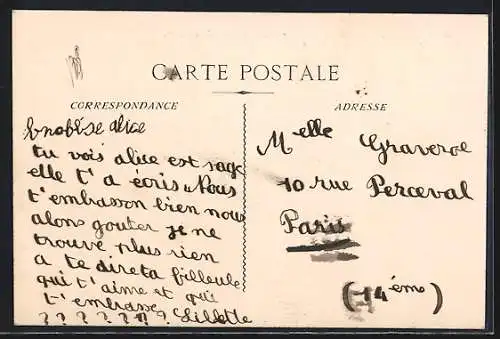 CARTE POSTALE
CORRESPONDANCE
ADRESSE
alice
tu vois alice est sage
elle t'a écris Nous
t'embrasson bien nous
alons gouter je ne
trouve plus rien
a te direta filleule
qui t'aime et qui
t'embrasse
? ? ? ? ? ? ? Lillette
Melle Graveroe
10 rue Perceval
Paris
(14ème)